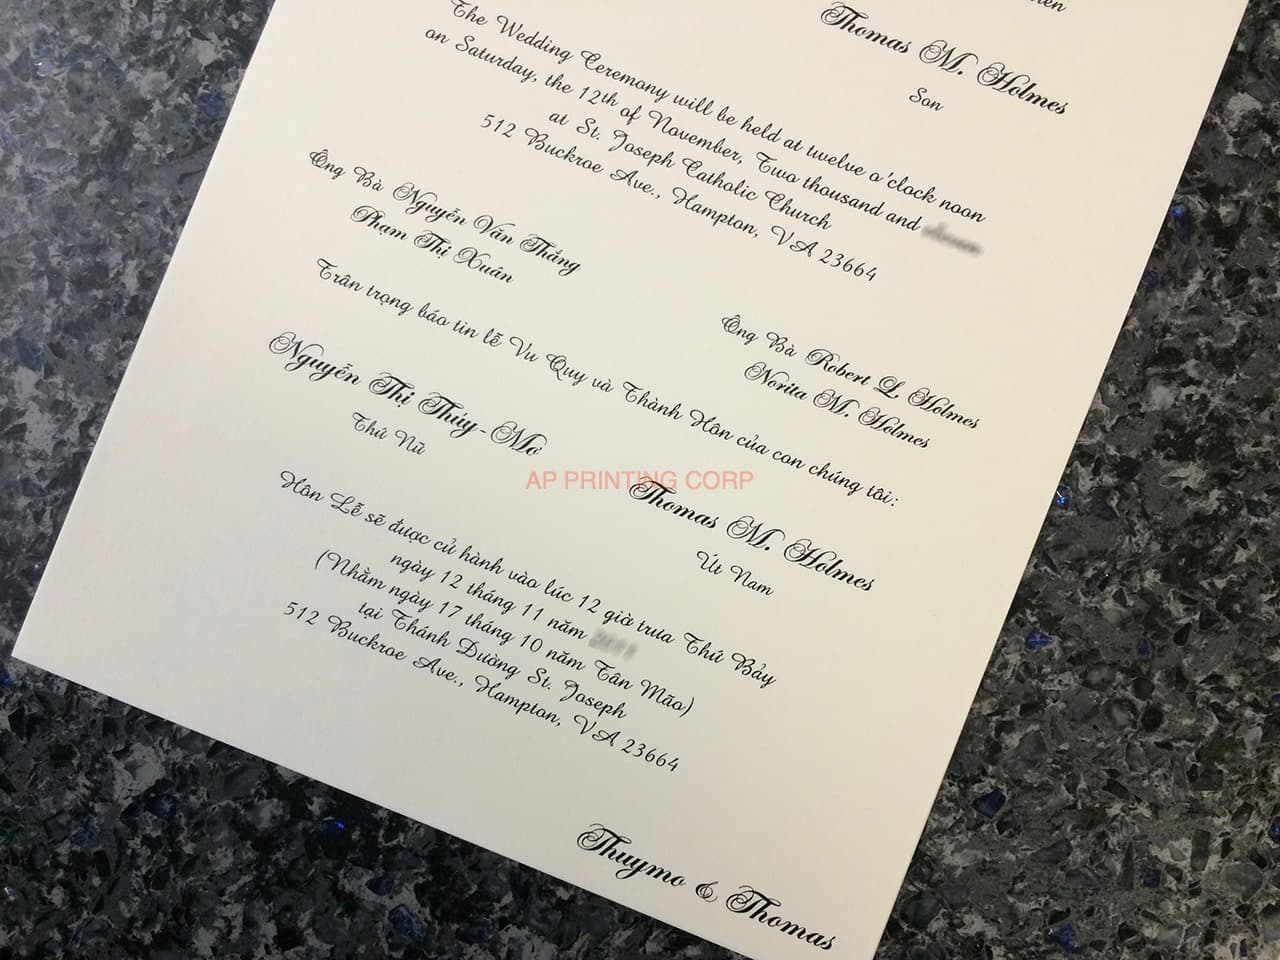 Thomas M. Holmes
Son
The Wedding Ceremony will be held at twelve o'clock noon
on Saturday, the 12th of November, Two thousand and
at St. Joseph Catholic Church
512 Buckroe Ave., Hampton, VA 23664
Ông Bà Nguyễn Văn Thắng
Phạm Thị Xuân
Ông Bà Robert L. Holmes
Norita M. Holmes
Trân trọng báo tin lễ Vu Quy và Thành Hôn của con chúng tôi:
Nguyễn Thị Thúy-Mơ
Thứ Nữ
Thomas M. Holmes
Út Nam
Hôn Lễ sẽ được cử hành vào lúc 12 giờ trưa Thứ Bảy
ngày 12 tháng 11 năm
(Nhằm ngày 17 tháng 10 năm Tân Mão)
tại Thánh Đường St. Joseph
512 Buckroe Ave., Hampton, VA 23664
Thuymo & Thomas
AP PRINTING CORP